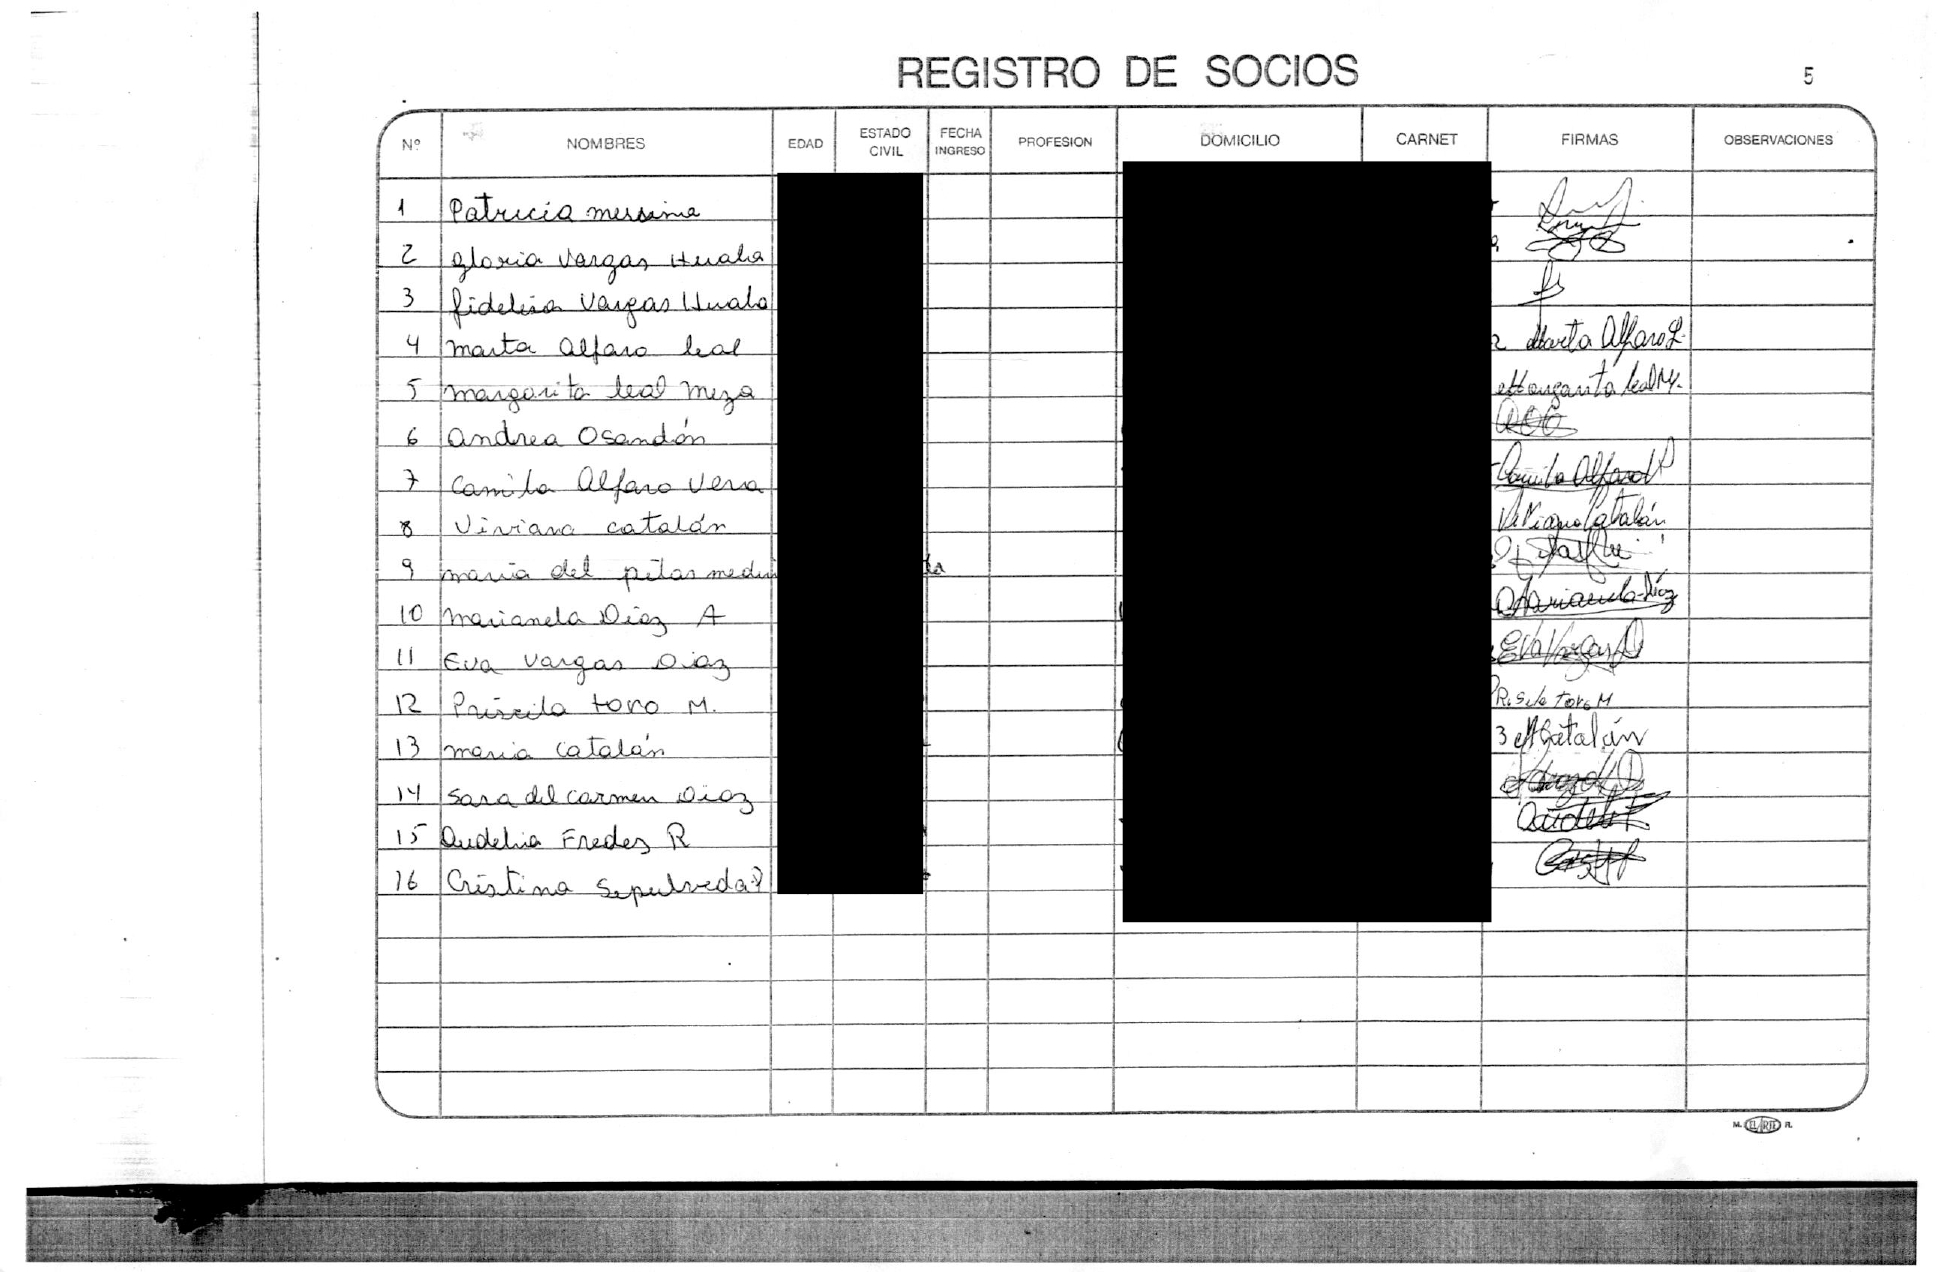 REGISTRO DE SOCIOS 5
Nº NOMBRES EDAD ESTADO CIVIL FECHA INGRESO PROFESION DOMICILIO CARNET FIRMAS OBSERVACIONES
1 Patricia messina
2 gloria Vargas Huala
3 fidelisa Vargas Huala
4 marta alfaro leal Marta Alfaro L.
5 margarita leal meza Margarita leal M.
6 andrea Osandón
7 Camila Alfaro Vera Camila Alfaro V
8 Viviana catalán Viviana Catalán
9 maria del pilar medin
10 marianela Diaz A Marianela Díaz
11 Eva Vargas Diaz Eva Vargas D
12 Priscila toro M. Priscila Toro M
13 maria Catalán 3 M Catalán
14 sara del carmen Diaz
15 Audelina Fredes R
16 Cristina Sepulveda P
M. EL ARTE R.